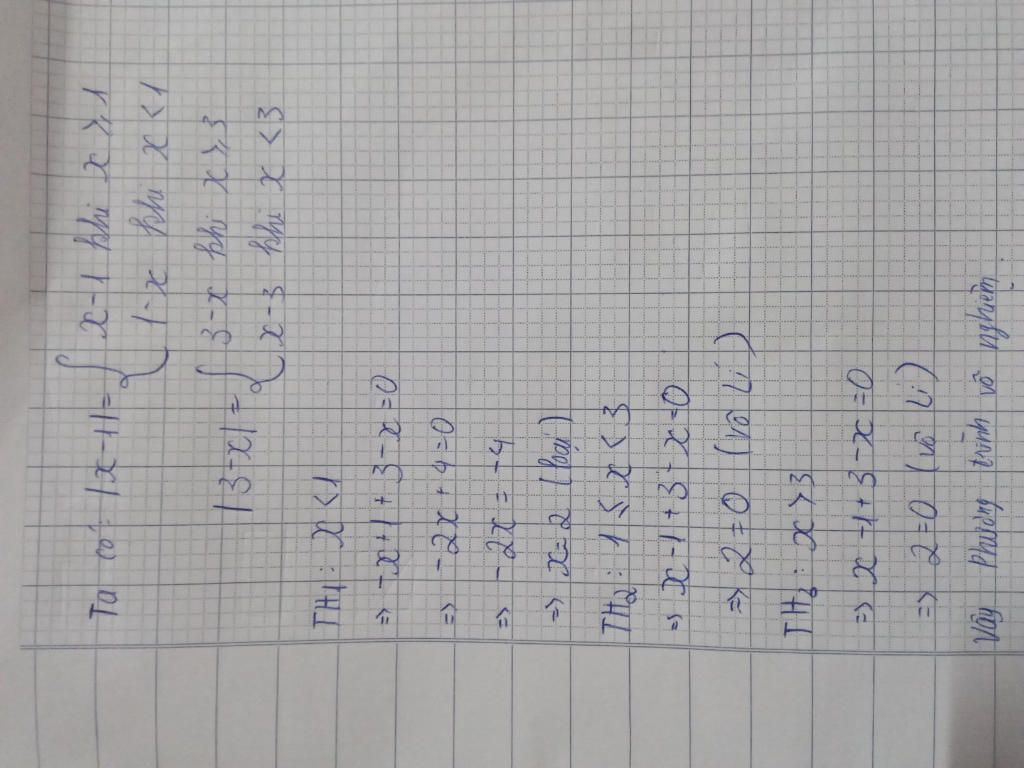 Ta có: |x-1| = { x-1 khi x ≥ 1
1-x khi x < 1
|3-x| = { 3-x khi x ≥ 3
x-3 khi x < 3
TH1: x < 1
=> -x+1+3-x=0
=> -2x+4=0
=> -2x=-4
=> x=2 (loại)
TH2: 1 ≤ x < 3
=> x-1+3-x=0
=> 2=0 (vô lí)
TH3: x ≥ 3
=> x-1+3-x=0
=> 2=0 (vô lí)
Vậy Phương trình vô nghiệm.